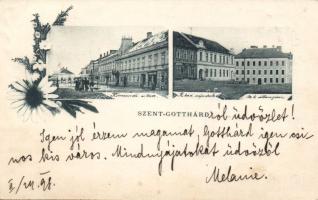 SZENT-GOTTHÁRD
ról üdvözlet!
Igen jól érzem magamat, Gotthárd igen csi-
nos kis város. Mindnyájatokat üdvözöl
Melanie.